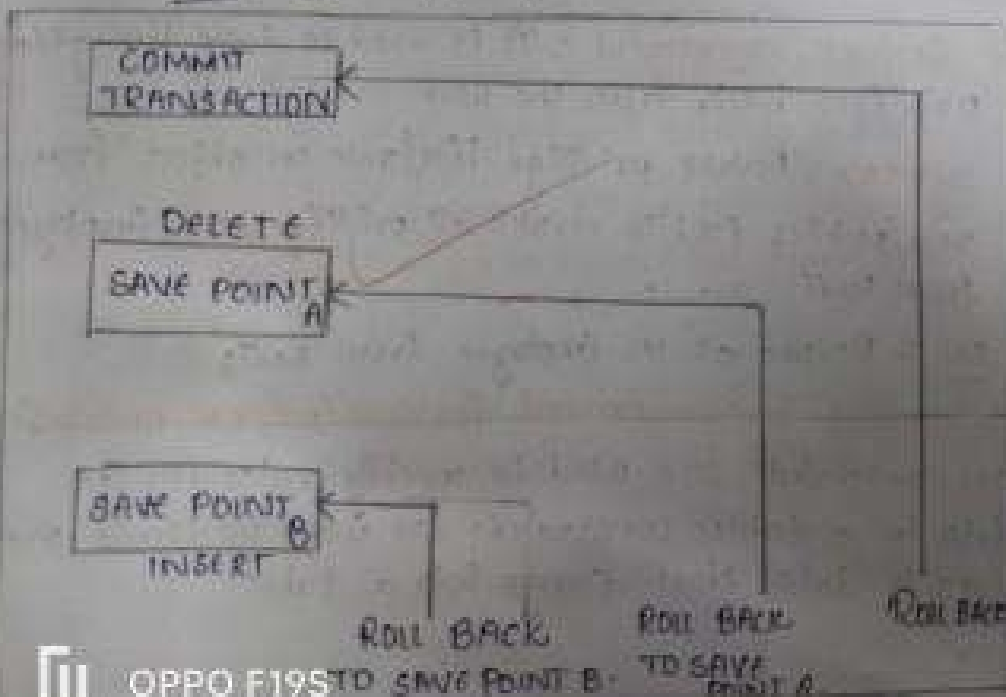 COMMIT
TRANSACTION
DELETE
SAVE POINT
A
SAVE POINT
B
INSERT
ROLL BACK
TO SAVE POINT B.
ROLL BACK
TO SAVE
POINT A
ROLL BACK
OPPO F19S